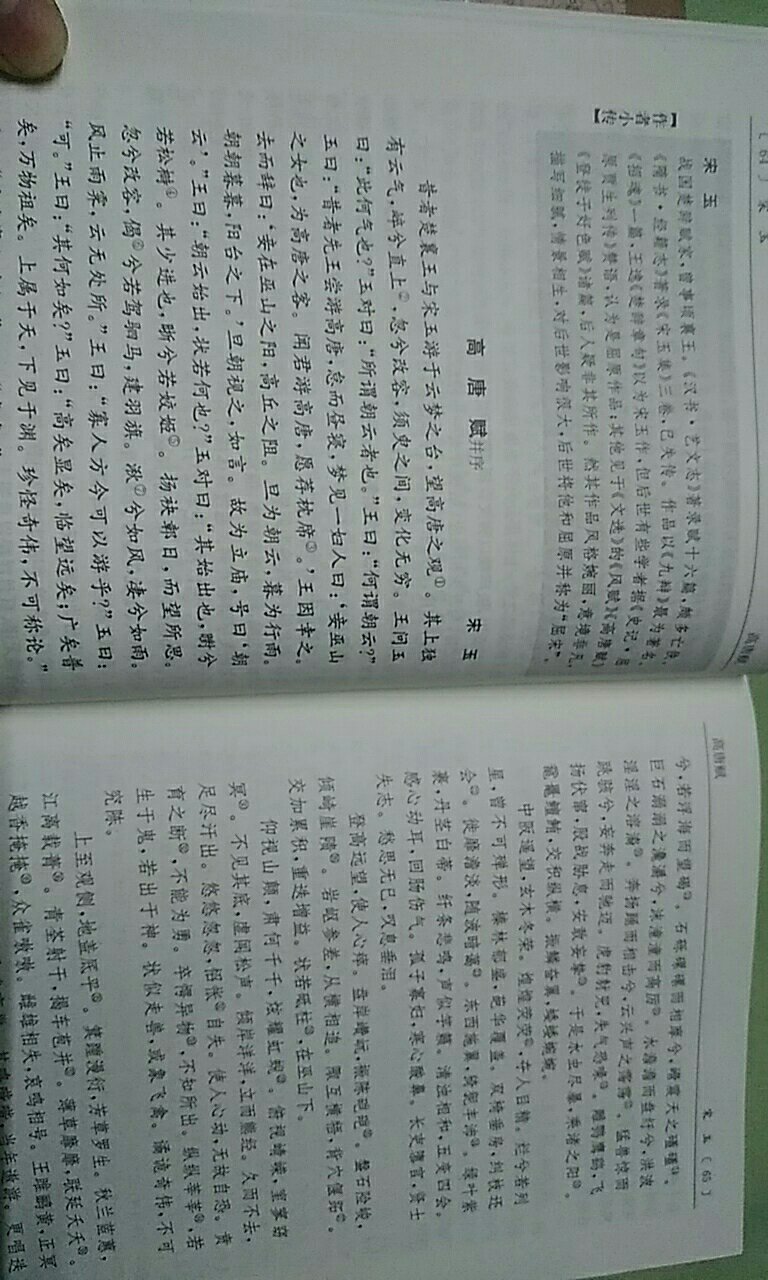 〔64〕 宋 玉
高唐赋
【作者小传】
宋 玉
战国楚辞赋家，曾事顷襄王。《汉书·艺文志》著录赋十六篇，颇多亡佚。
《隋书·经籍志》著录《宋玉集》三卷，已失传。作品以《九辩》最为著名。
《招魂》一篇，王逸《楚辞章句》以为宋玉作，但后世有些学者据《史记·屈
原贾生列传》赞语，认为是屈原作品；其他见于《文选》的《风赋》《高唐赋》
《登徒子好色赋》诸篇，后人疑非其所作。然其作品风格婉丽，意境非凡，
描写细腻，情景相生，对后世影响很大，后世将他和屈原并称为“屈宋”。
高 唐 赋并序
宋 玉
昔者楚襄王与宋玉游于云梦之台，望高唐之观①。其上独
有云气，崪兮直上②，忽兮改容，须臾之间，变化无穷。王问玉
曰：“此何气也？”玉对曰：“所谓朝云者也。”王曰：“何谓朝云？”
玉曰：“昔者先王尝游高唐，怠而昼寝，梦见一妇人曰：‘妾巫山
之女也，为高唐之客。闻君游高唐，愿荐枕席③。’王因幸之。
去而辞曰：‘妾在巫山之阳，高丘之阻。旦为朝云，暮为行雨。
朝朝暮暮，阳台之下。’旦朝视之，如言。故为立庙，号曰‘朝
云’。”王曰：“朝云始出，状若何也？”玉对曰：“其始出也，㬣兮
若松榯④。其少进也，晰兮若姣姬⑤。扬袂鄣日，而望所思。
忽兮改容，偈⑥兮若驾驷马，建羽旗。湫⑦兮如风，凄兮如雨。
风止雨霁，云无处所。”王曰：“寡人方今可以游乎？”玉曰：
“可。”王曰：“其何如矣？”玉曰：“高矣显矣，临望远矣；广矣普
矣，万物祖矣。上属于天，下见于渊。珍怪奇伟，不可称论。”
高唐赋
宋 玉 〔65〕
兮，若浮海而望碣。石砾磥磥而相摩兮，巆震天之磕磕。
巨石溺溺之瀺灂兮，沫潼潼而高厉。水澹澹而盘纡兮，洪波
淫淫之溶㵝。奔扬踊而相击兮，云兴声之霈霈。猛兽惊而
跳骇兮，妄奔走而驰迈。虎豹豺兕，失气恐喙。雕鹗鹰鹞，飞
扬伏窜，股战胁息，安敢妄挚。于是水虫尽暴，乘渚之阳。
鼋鼍鳣鲔，交积纵横。振鳞奋翼，蜲蜲蜿蜿。
中阪遥望，玄木冬荣。煌煌荧荧，夺人目精。烂兮若列
星，曾不可殚形。榛林郁盛，葩华覆盖。双椅垂房，纠枝还
会。徙靡澹淡，随波暗蔼。东西施翼，猗狔丰沛。绿叶紫
裹，丹茎白蒂。纤条悲鸣，声似竽籁。清浊相和，五变四会。
感心动耳，回肠伤气。孤子寡妇，寒心酸鼻。长吏隳官，贤士
失志。愁思无已，叹息垂泪。
登高远望，使人心瘁。盘岸巑岏，裖陈硙硙。磐石险峻，
倾崎崖隤。岩岖参差，从横相追。陬互横牾，背穴偃跖。
交加累积，重迭增益。状若砥柱，在巫山下。
仰视山颠，肃何千千，炫耀虹蜺。俯视崝嵘，窐寥窈
冥。不见其底，虚闻松声。倾岸洋洋，立而熊经。久而不去，
足尽汗出。悠悠忽忽，怊怅自失。使人心动，无故自恐。贲
育之断，不能为勇。卒愕异物，不知所出。縰縰莘莘，若
生于鬼，若出于神。状似走兽，或象飞禽。谲诡奇伟，不可
究陈。
上至观侧，地盖底平。箕踵漫衍，芳草罗生。秋兰茝蕙，
江离载菁。青荃射干，揭车苞并。薄草靡靡，联延夭夭。
越香掩掩，众雀嗷嗷。雌雄相失，哀鸣相号。王雎鹂黄，正冥